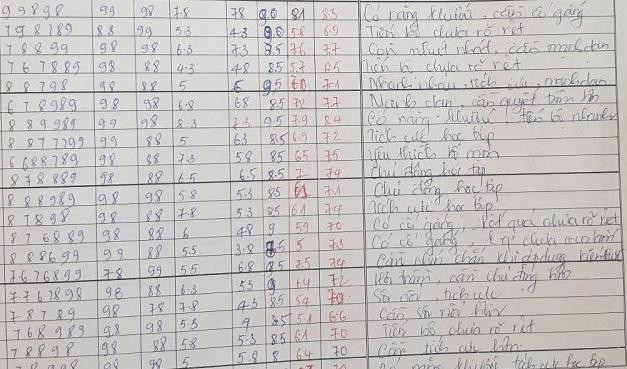 99898 99 98 78 78 9.0 81 83 Có năng khiếu, cần cố gắng
798789 88 99 5.3 43 80 58 6.9 Tiến bộ chưa rõ rệt
78899 98 98 6.3 73 85 76 77 Còn nhút nhát, cần mạnh dạn
767889 98 88 4.3 48 85 57 65 Tiến bộ chưa rõ rệt
88798 98 88 5 95 71 Nhanh nhẹn, tích cực, mạnh dạn
678989 98 98 6.8 68 8.5 72 7.7 Mạnh dạn, cần quyết tâm hơn
889989 99 98 8.3 7.3 95 79 84 Có năng khiếu, tiến bộ nhanh
8877799 99 88 5 63 8.5 6.9 72 Tích cực học tập
6688789 98 88 7.3 58 85 65 75 Yêu thích bộ môn
878889 98 88 6.5 6.5 8.5 7 74 Chủ động học tập
888989 98 98 5.8 5.3 85 61 71 Chủ động học tập
87898 98 88 7.8 5.3 85 61 74 Tích cực học tập
876889 98 88 6 48 9 59 70 Có cố gắng, kết quả chưa rõ rệt
888699 99 88 5.5 3.8 5 7.3 Có cố gắng, chưa
7676899 78 99 5.5 6.8 85 7.5 74 Cần chăm khi áp dụng kiến thức
7767898 98 88 6.3 5.5 9 64 72 trầm, cần chủ động hơn
78789 98 78 7.8 43 85 54 70 Sôi nổi, tích cực
768989 98 98 5.5 9 85 51 66 Cần sôi nổi hơn
78898 98 88 5.8 5.3 85 61 70 Tiến bộ chưa rõ rệt
98 98 5 5.8 8 64 70 Cần tích cực hơn
năng khiếu, tích cực học tập